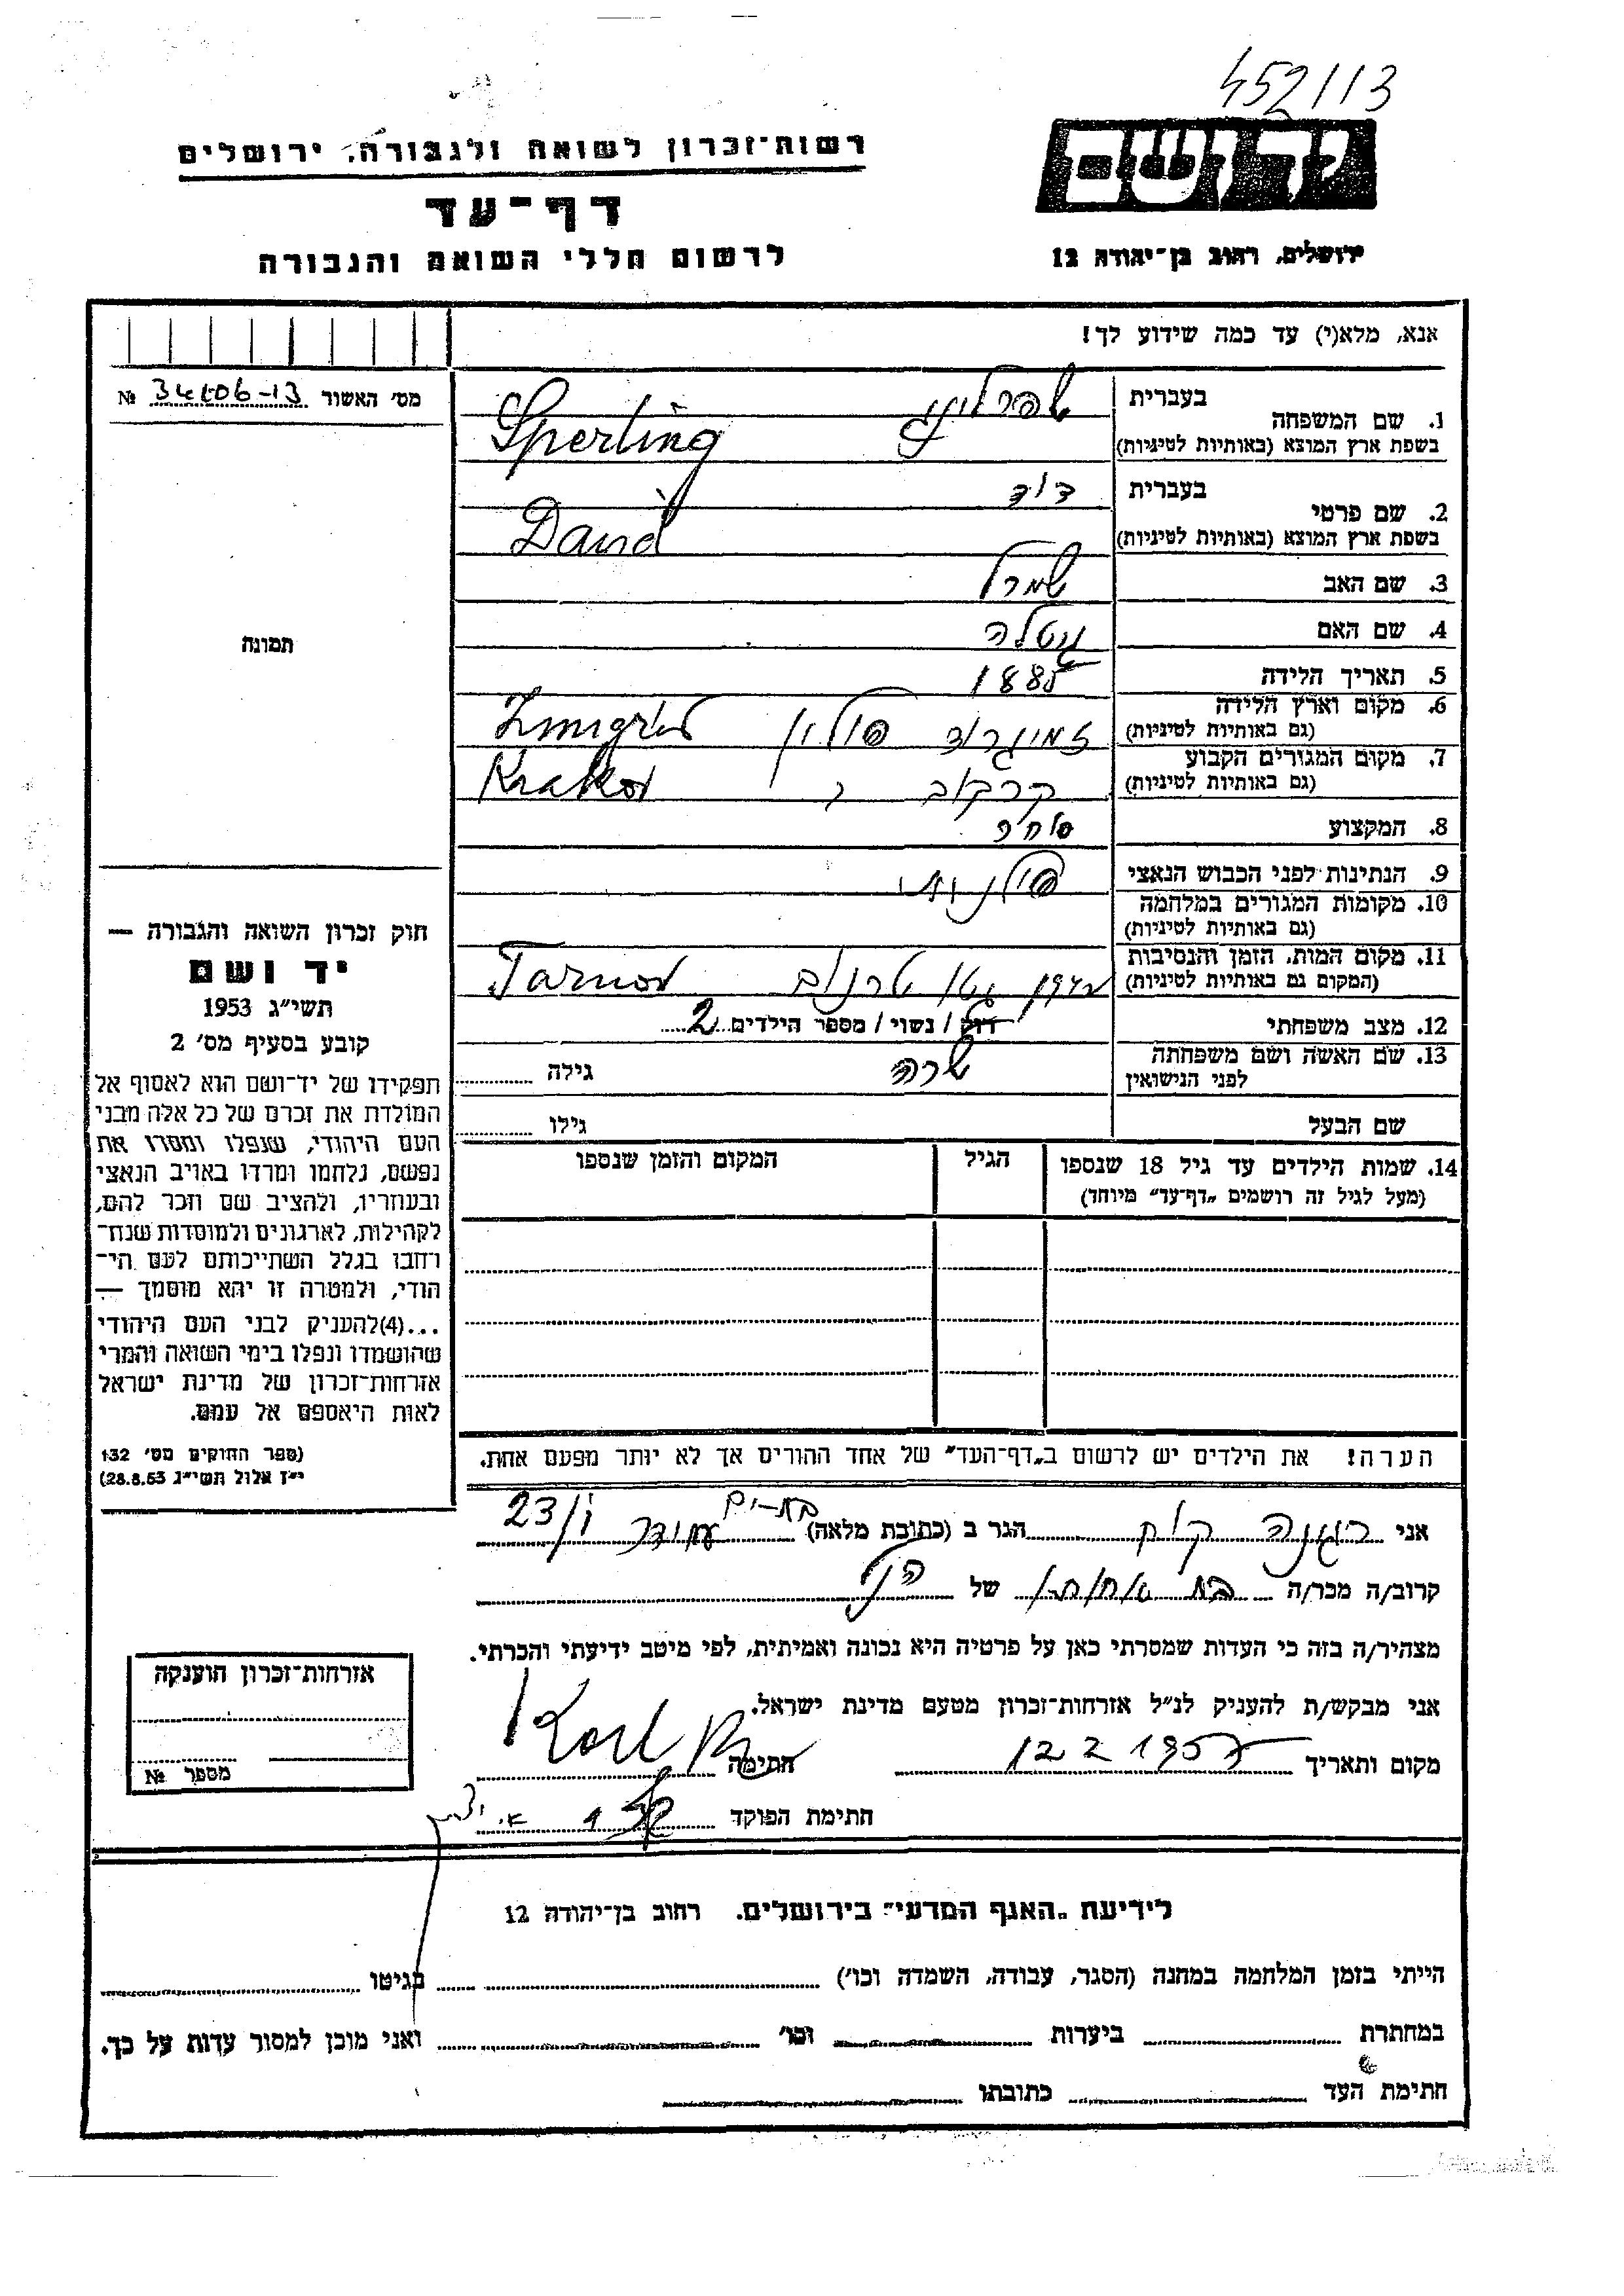 452113
רשות־זכרון לשואה ולגבורה, ירושלים
יד ושם
דף־עד
לרשום חללי השואה והגבורה
ירושלים, רחוב בן־יהודה 12
אנא, מלא(י) עד כמה שידוע לך!
מס׳ האשור № 34106-13
1. שם המשפחה בעברית שפרלינג
בשפת ארץ המוצא (באותיות לטיניות) Sperling
2. שם פרטי בעברית דוד
בשפת ארץ המוצא (באותיות לטיניות) David
3. שם האב שמרל
4. שם האם גיטלה
5. תאריך הלידה 1885
6. מקום וארץ הלידה (גם באותיות לטיניות) זמיגרוד פולין Zmigród
7. מקום המגורים הקבוע (גם באותיות לטיניות) קרקוב Krakov
8. המקצוע סוחר
9. הנתינות לפני הכבוש הנאצי פולנית
10. מקומות המגורים במלחמה (גם באותיות לטיניות)
11. מקום המות, הזמן והנסיבות (המקום גם באותיות לטיניות) גטו טרנוב Tarnov
12. מצב משפחתי רוק / נשוי / מספר הילדים 2
13. שם האשה ושם משפחתה לפני הנישואין שרה גילה
שם הבעל גילו
14. שמות הילדים עד גיל 18 שנספו הגיל המקום והזמן שנספו
(מעל לגיל זה רושמים „דף־עד״ מיוחד)
תמונה
חוק זכרון השואה והגבורה —
יד ושם
תשי״ג 1953
קובע בסעיף מס׳ 2
תפקידו של יד־ושם הוא לאסוף אל
המולדת את זכרם של כל אלה מבני
העם היהודי, שנפלו ומסרו את
נפשם, נלחמו ומרדו באויב הנאצי
ובעוזריו, ולהציב שם וזכר להם,
לקהילות, לארגונים ולמוסדות שנח־
רחבו בגלל השתייכותם לעם הי־
הודי, ולמטרה זו יהא מוסמך —
...(4)להעניק לבני העם היהודי
שהושמדו ונפלו בימי השואה והמרי
אזרחות־זכרון של מדינת ישראל
לאות היאספם אל עמם.
(ספר החוקים מס׳ 132
י״ז אלול תשי״ג 28.8.53)
הערה! את הילדים יש לרשום ב„דף־העד״ של אחד ההורים אך לא יותר מפעם אחת.
אני רגינה קול הגר ב (כתובת מלאה) בת-ים 23/
קרוב/ה מכר/ה בת אחותו של הנ״ל
מצהיר/ה בזה כי העדות שמסרתי כאן על פרטיה היא נכונה ואמיתית, לפי מיטב ידיעתי והכרתי.
אני מבקש/ת להעניק לנ״ל אזרחות־זכרון מטעם מדינת ישראל.
מקום ותאריך 12 2 1957 חתימה
חתימת הפוקד
אזרחות־זכרון הוענקה
מספר №
לידיעת „האגף המדעי״ בירושלים, רחוב בן־יהודה 12
הייתי בזמן המלחמה במחנה (הסגר, עבודה, השמדה וכו׳) בגיטו
במחתרת ביערות וכו׳ ואני מוכן למסור עדות על כך.
חתימת העד כתובתו